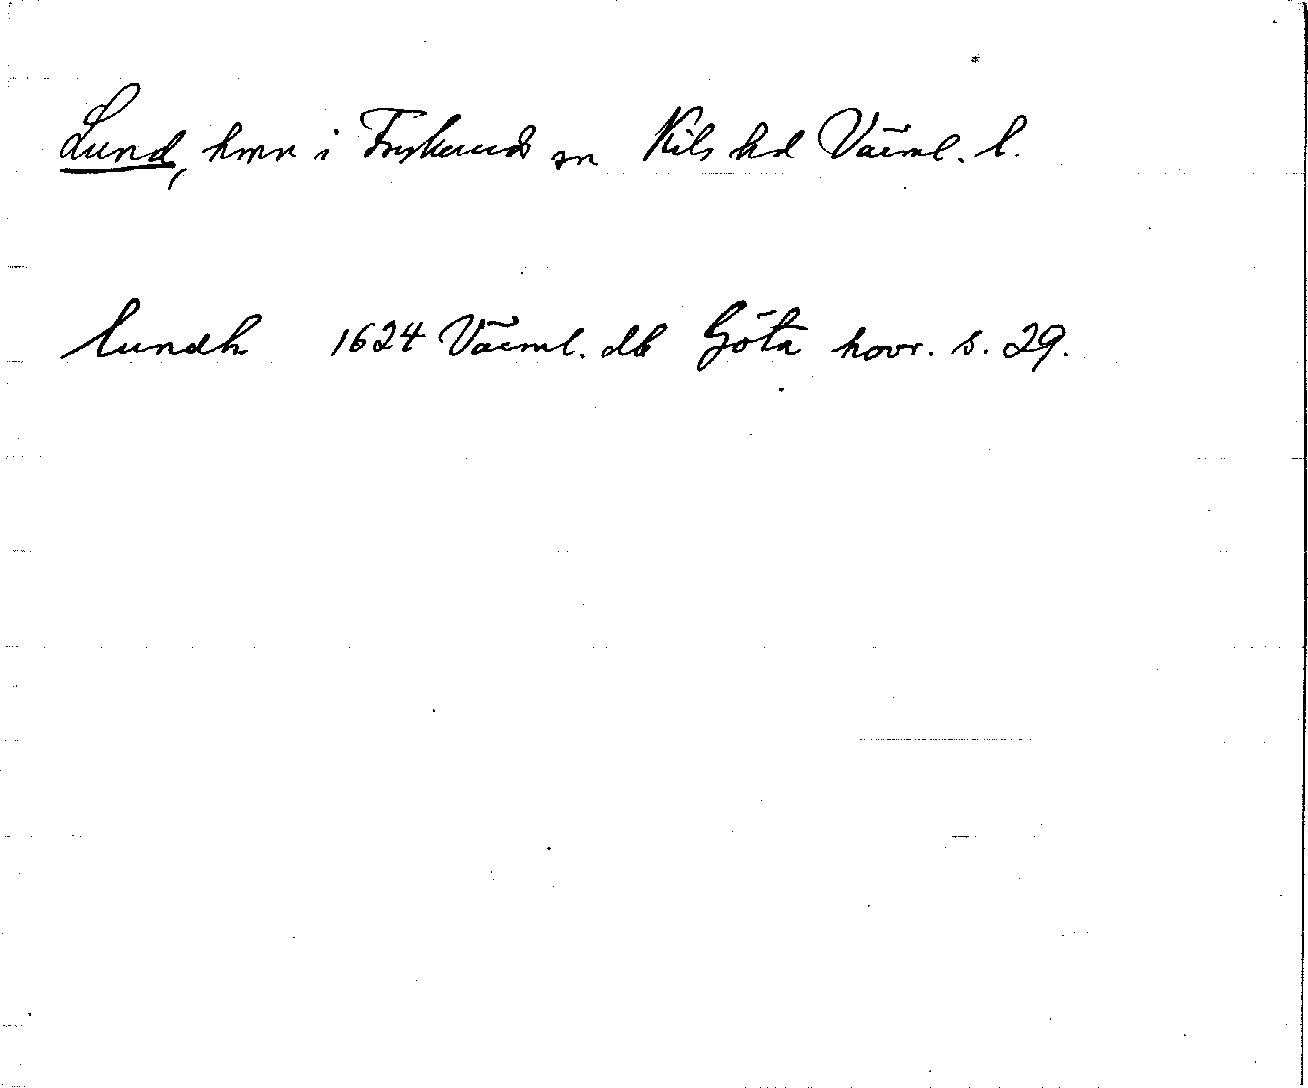 Lund, hmn i Frykeruds sn Kils hd Värml. l.
lundh 1624 Värml. db Göta hovr. s. 29.